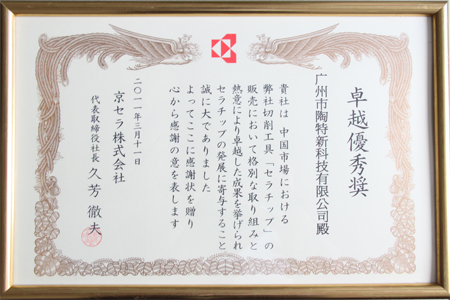 卓越優秀奨
广州市陶特新科技有限公司殿
貴社は 中国市場における
弊社切削工具「セラチップ」の
販売において格別な取り組みと
熱意により卓越した成果を挙げられ
セラチップの発展に寄与すること
誠に大でありました
よってここに感謝状を贈り
心から感謝の意を表します
二〇一一年三月十一日
京セラ株式会社
代表取締役社長 久芳 徹夫